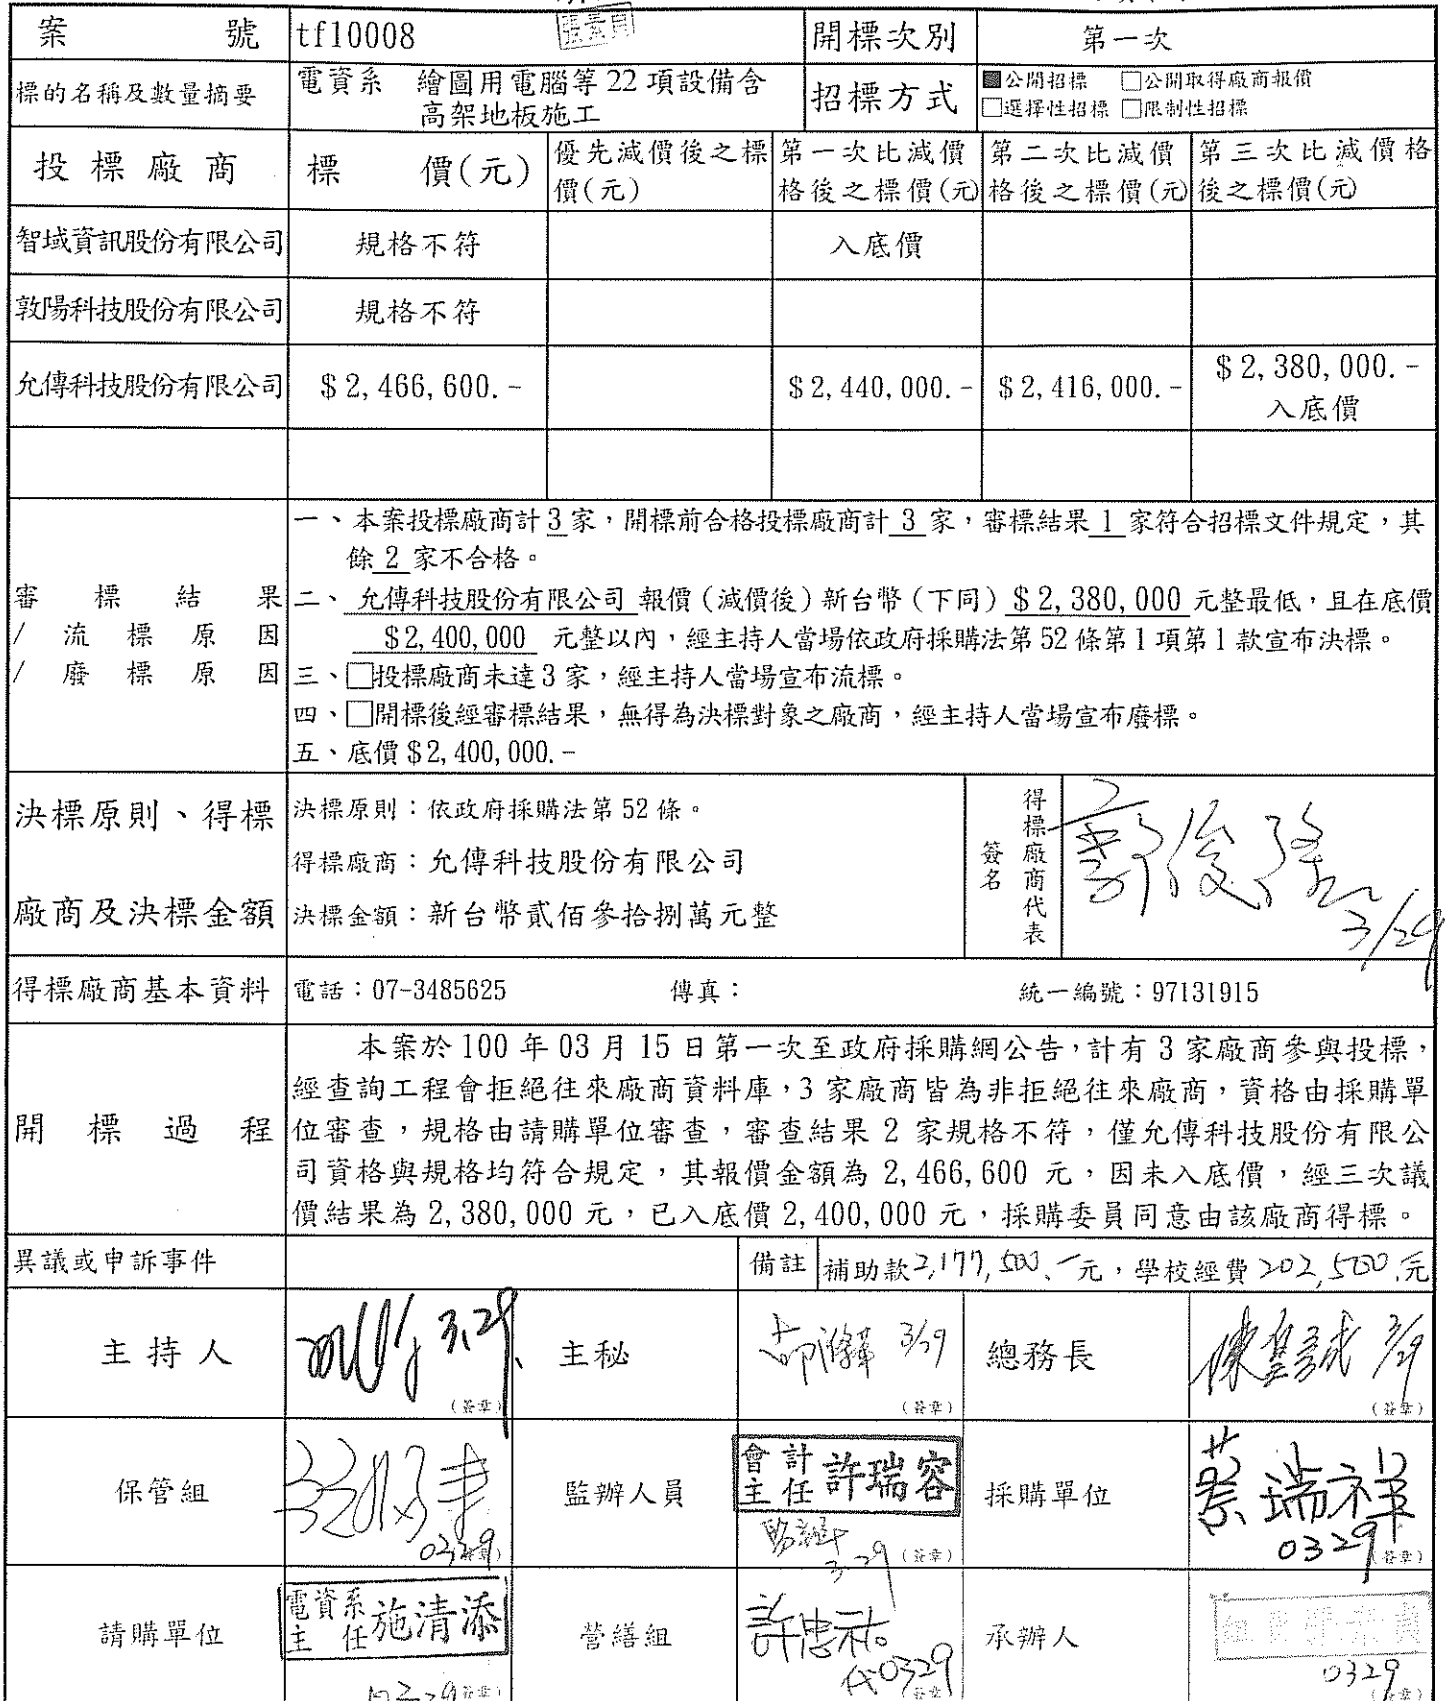 案 號 tf10008 張素貞 開標次別 第一次
標的名稱及數量摘要 電資系 繪圖用電腦等22項設備含
高架地板施工
招標方式 ■公開招標 □公開取得廠商報價
□選擇性招標 □限制性招標
投標廠商 標 價(元) 優先減價後之標價(元) 第一次比減價格後之標價(元) 第二次比減價格後之標價(元) 第三次比減價格後之標價(元)
智域資訊股份有限公司 規格不符 入底價
敦陽科技股份有限公司 規格不符
允傳科技股份有限公司 $2,466,600.- $2,440,000.- $2,416,000.- $2,380,000.-
入底價
審標結果
/流標原因
/廢標原因
一、本案投標廠商計3家，開標前合格投標廠商計 3 家，審標結果 1 家符合招標文件規定，其
餘 2 家不合格。
二、 允傳科技股份有限公司 報價（減價後）新台幣（下同） $2,380,000 元整最低，且在底價
$2,400,000 元整以內，經主持人當場依政府採購法第52條第1項第1款宣布決標。
三、□投標廠商未達3家，經主持人當場宣布流標。
四、□開標後經審標結果，無得為決標對象之廠商，經主持人當場宣布廢標。
五、底價$2,400,000.-
決標原則、得標
廠商及決標金額
決標原則：依政府採購法第52條。
得標廠商：允傳科技股份有限公司
決標金額：新台幣貳佰參拾捌萬元整
得標廠商代表
簽名
3/29
得標廠商基本資料 電話：07-3485625 傳真： 統一編號：97131915
開標過程
本案於100年03月15日第一次至政府採購網公告，計有3家廠商參與投標，
經查詢工程會拒絕往來廠商資料庫，3家廠商皆為非拒絕往來廠商，資格由採購單
位審查，規格由請購單位審查，審查結果2家規格不符，僅允傳科技股份有限公
司資格與規格均符合規定，其報價金額為2,466,600元，因未入底價，經三次議
價結果為2,380,000元，已入底價2,400,000元，採購委員同意由該廠商得標。
異議或申訴事件 備註 補助款2,177,500.-元，學校經費202,500.元
主持人 3.29 (簽章) 主秘 3/29 (簽章) 總務長 3/29 (簽章)
保管組 0329 (簽章) 監辦人員 會計主任 許瑞容 3-29 (簽章) 採購單位 蔡瑞祥 0329 (簽章)
請購單位 電資系主任 施清添 (簽章) 營繕組 許忠祐 代0329 (簽章) 承辦人 0329 (簽章)